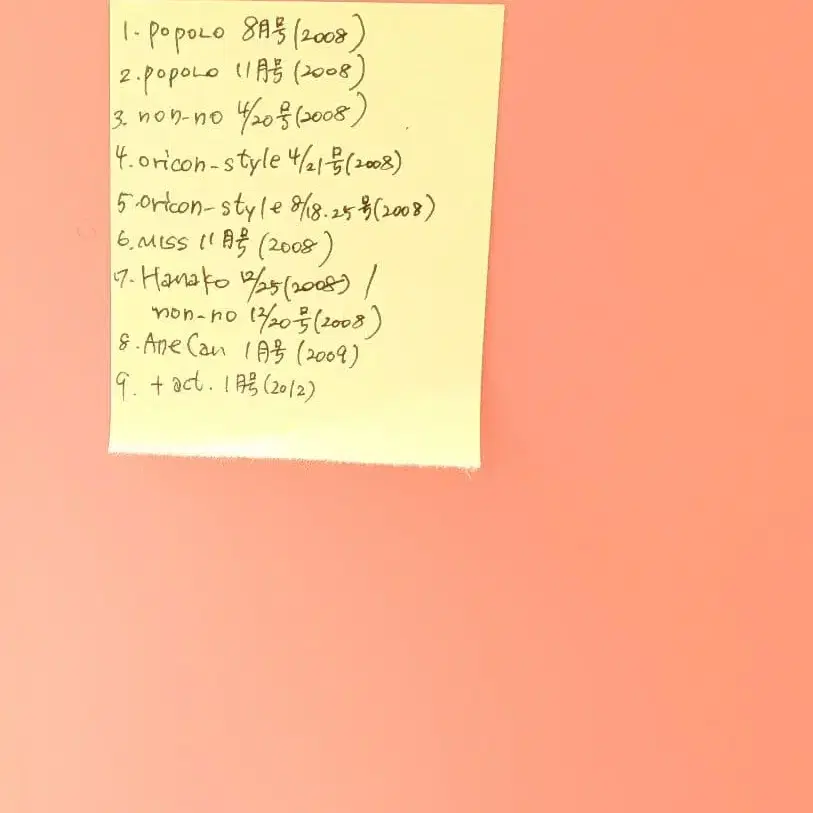 1. POPOLO 8月号(2008)
2. POPOLO 11月号(2008)
3. non-no 4/20号(2008)
4. oricon-style 4/21号(2008)
5. oricon-style 8/18.25号(2008)
6. MISS 11月号(2008)
7. Hanako 12/25(2008) /
non-no 12/20号(2008)
8. AneCan 1月号(2009)
9. +act. 1月号(2012)